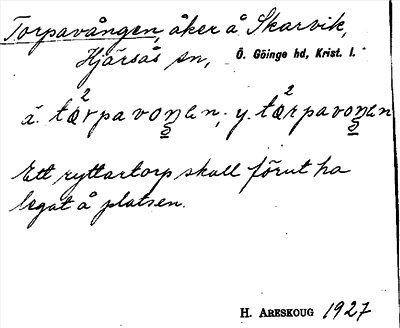 Torpavången, åker å Skarvik,
Hjärsås sn, Ö. Göinge hd, Krist. l.
ä. tα²rpavoŋen; y. tα²rpavoŋen
Ett ryttartorp skall förut ha
legat å platsen.
H. ARESKOUG 1927